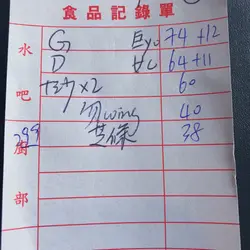 食品記錄單
水吧
G 74+12
D 64+11
x2 60
勿wing 40
芝條 38
299
廚部